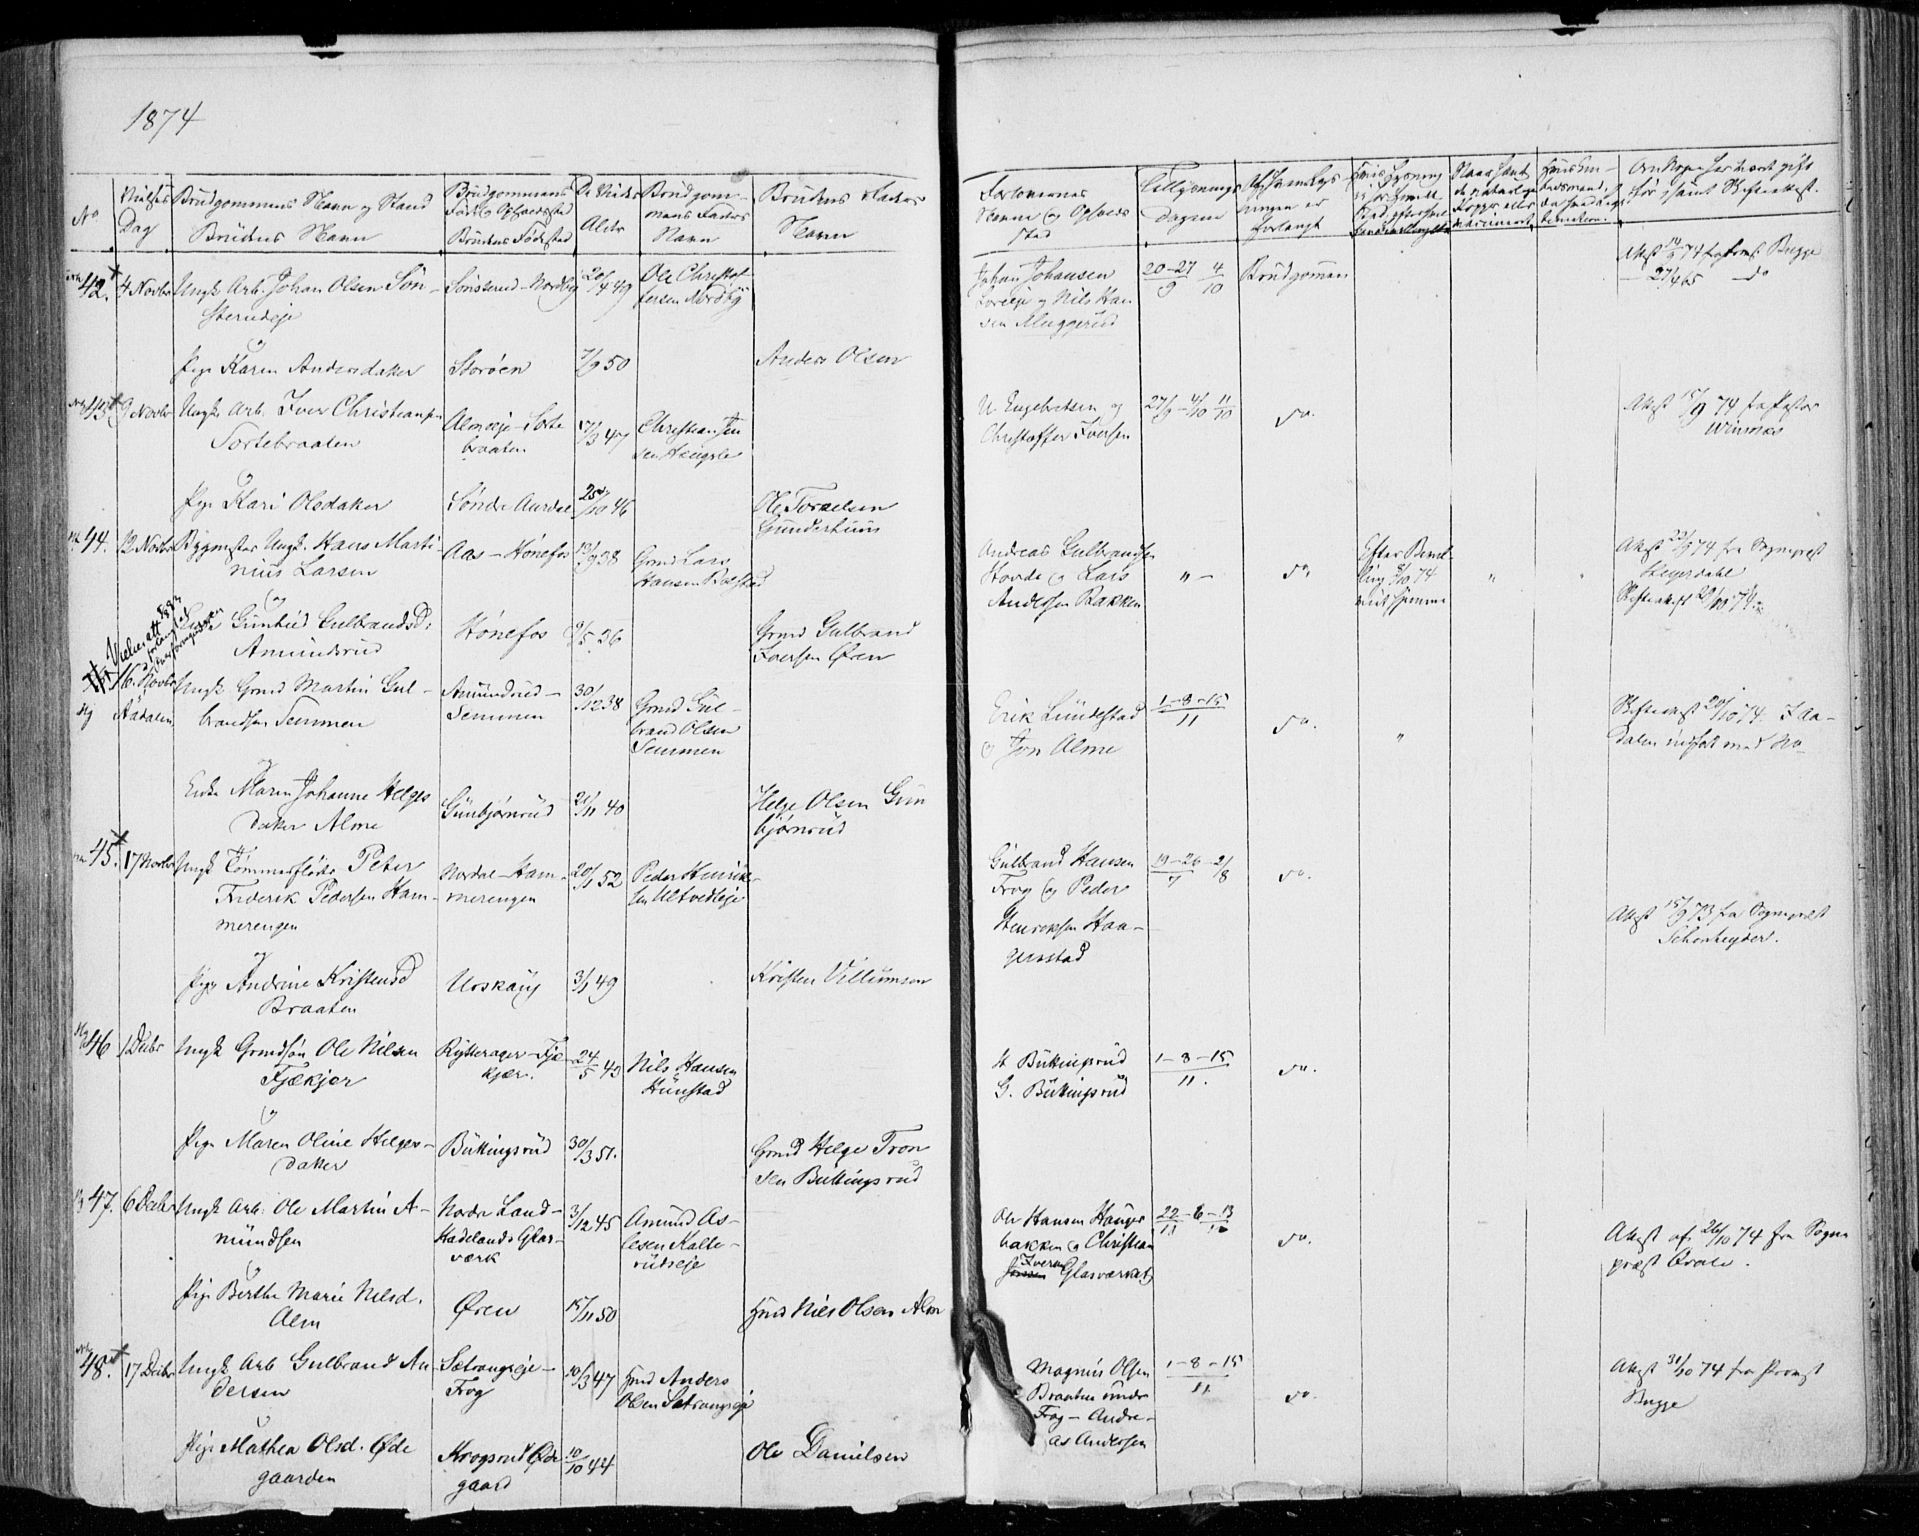 1874
No
Vielses
Dag
Brudgommens Navn og Stand
Brudens Navn
Brudgommens
Fødested
Brudens Fødested
De Viedes
Alder
Brudgom-
mens Faders
Navn
Brudens Faders
Navn
Forlovernes
Navne og Opholds
sted
Tillysnings-
dagene
42. 4 Novbr Ungk. Arb. Johan Olsen Søn-
sterudeje
Sønsterud - Nordby
20/4 49
Ole Christof
fersen Nordby
Johan Johansen
og Nils Han
sen Muggerud
20-27/9 4/10
Brudgommen
Attest 14/9 74 fra Provst Bugge
27/4 65 do
og
Pige Karen Andersdatter
Storøen
7/9 50
Anders Olsen
43. 9 Novbr Ungk. Arb. Iver Christiansen
Sortebraaten
Almeje - Sorte
braaten
17/3 47
Christian Jen
sen Hengsle
U. Engebretsen og
Christoffer Iversen
27/9 - 4/10 11/10
do.
Attest 15/9 74 fra Pastor
Winsnes
og
Pige Kari Olsdatter
Søndr Aurdal
25/10 46
Ole Torkelsen
Gunderhuus
44. 12 Novbr Bygmester Ungk. Hans Marti-
nius Larsen
Aas - Hønefos
13/9 38
Grmd Lars
Hansen
Andreas Gulbrandsen
Hovde og Lars
Andersen Bakken
" -
do.
Efter Bevil
ling 8/10 74
viet hjemme
"
Attest 22/9 74 fra Sognepræst
Stejerdahl
Skifteattest 29/10 74
og
Enke Gunhild Gulbrandsd:
Amundsrud
Hønefos
9/5 36
Grmd Gulbrand
Iversen Øren
Vielsesatt 1883
16. Novbr
Aadalen
Ungk. Grmd Martin Gul-
brandsen Semmen
Amundrud -
Semmen
30/12 38
Grmd Gul-
brand Olsen
Semmen
Erik Lundestad
og Jon Alme
1-8-15/11
do.
"
Skifteattest 20/10 74. I Aa-
dalen indført med No-
og
Enke Maren Johanne Helges
datter Alme
Gunbjørnrud
21/11 40
Helge Olsen Gun
bjørnrud
45. 17 Novbr Ungk Tømmerfløder Peter
Frederik Pedersen Ham-
merengen
Nordal - Ham-
merengen
20/1 52
Peder Henrik-
sen Ultvedteje
Gulbrand Hansen
Frog og Peder
Henriksen Haa-
gerstad
19-26/7 2/8
do.
Attest 15/9 73 fra Sognepræst
Schonheyder.
og
Pige Andrine Kristensd
Braaten
Urskoug
3/1 49
Kristen Villumsen
46 1 Decbr Ungk Grmdsøn Ole Nilsen
Fjækjer
Rytterager - Fjæ
kjær.
24/5 43
Nils Hansen
Hunstad
H Bukkingsrud
G. Bukkingsrud
1-8-15/11.
do.
og
Pige Maren Oline Helges-
datter
Bukkingsrud
30/3 51.
Grmd Helge Tron
sen Bukkingsrud
47. 6 Decbr Ungk Arb. Ole Martin A-
mundsen
Nordre Land -
Hadelands Glas-
værk
3/12 45
Amund As-
lesen Kalte-
rudseje
Ole Hansen Hauge
bakken og Christian
Iversen Glasværket
22/11 - 6 - 13/12
do.
Attest af 26/10 74 fra Sogne
præst
og
Pige Berthe Marie Nilsd.
Alm
Øren
15/11 50
Hmd Nils Olsen Alm
48. 17 Decbr Ungk Arb Gulbrand An-
dersen
Sætrangseje -
Frog
10/3 47
Hmd Anders
Olsen Sætrangseje
Magnus Olsen
Braaten under
Frog - Andre-
as Andersen
1-8-15/11
do.
Attest 31/10 74 fra Provst
Bugge
Pige Mathea Olsd. Øde
gaarden
Krogsrud Øde
gaard
10/10 44
Ole Danielsen